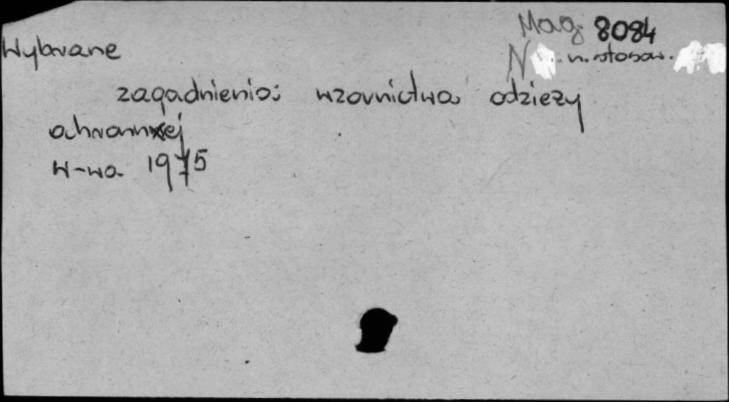 Mag. 8084
Wybrane
N n. stosow.
zagadnienia wzornictwa odzieży
ochronnej
W-wa 1975